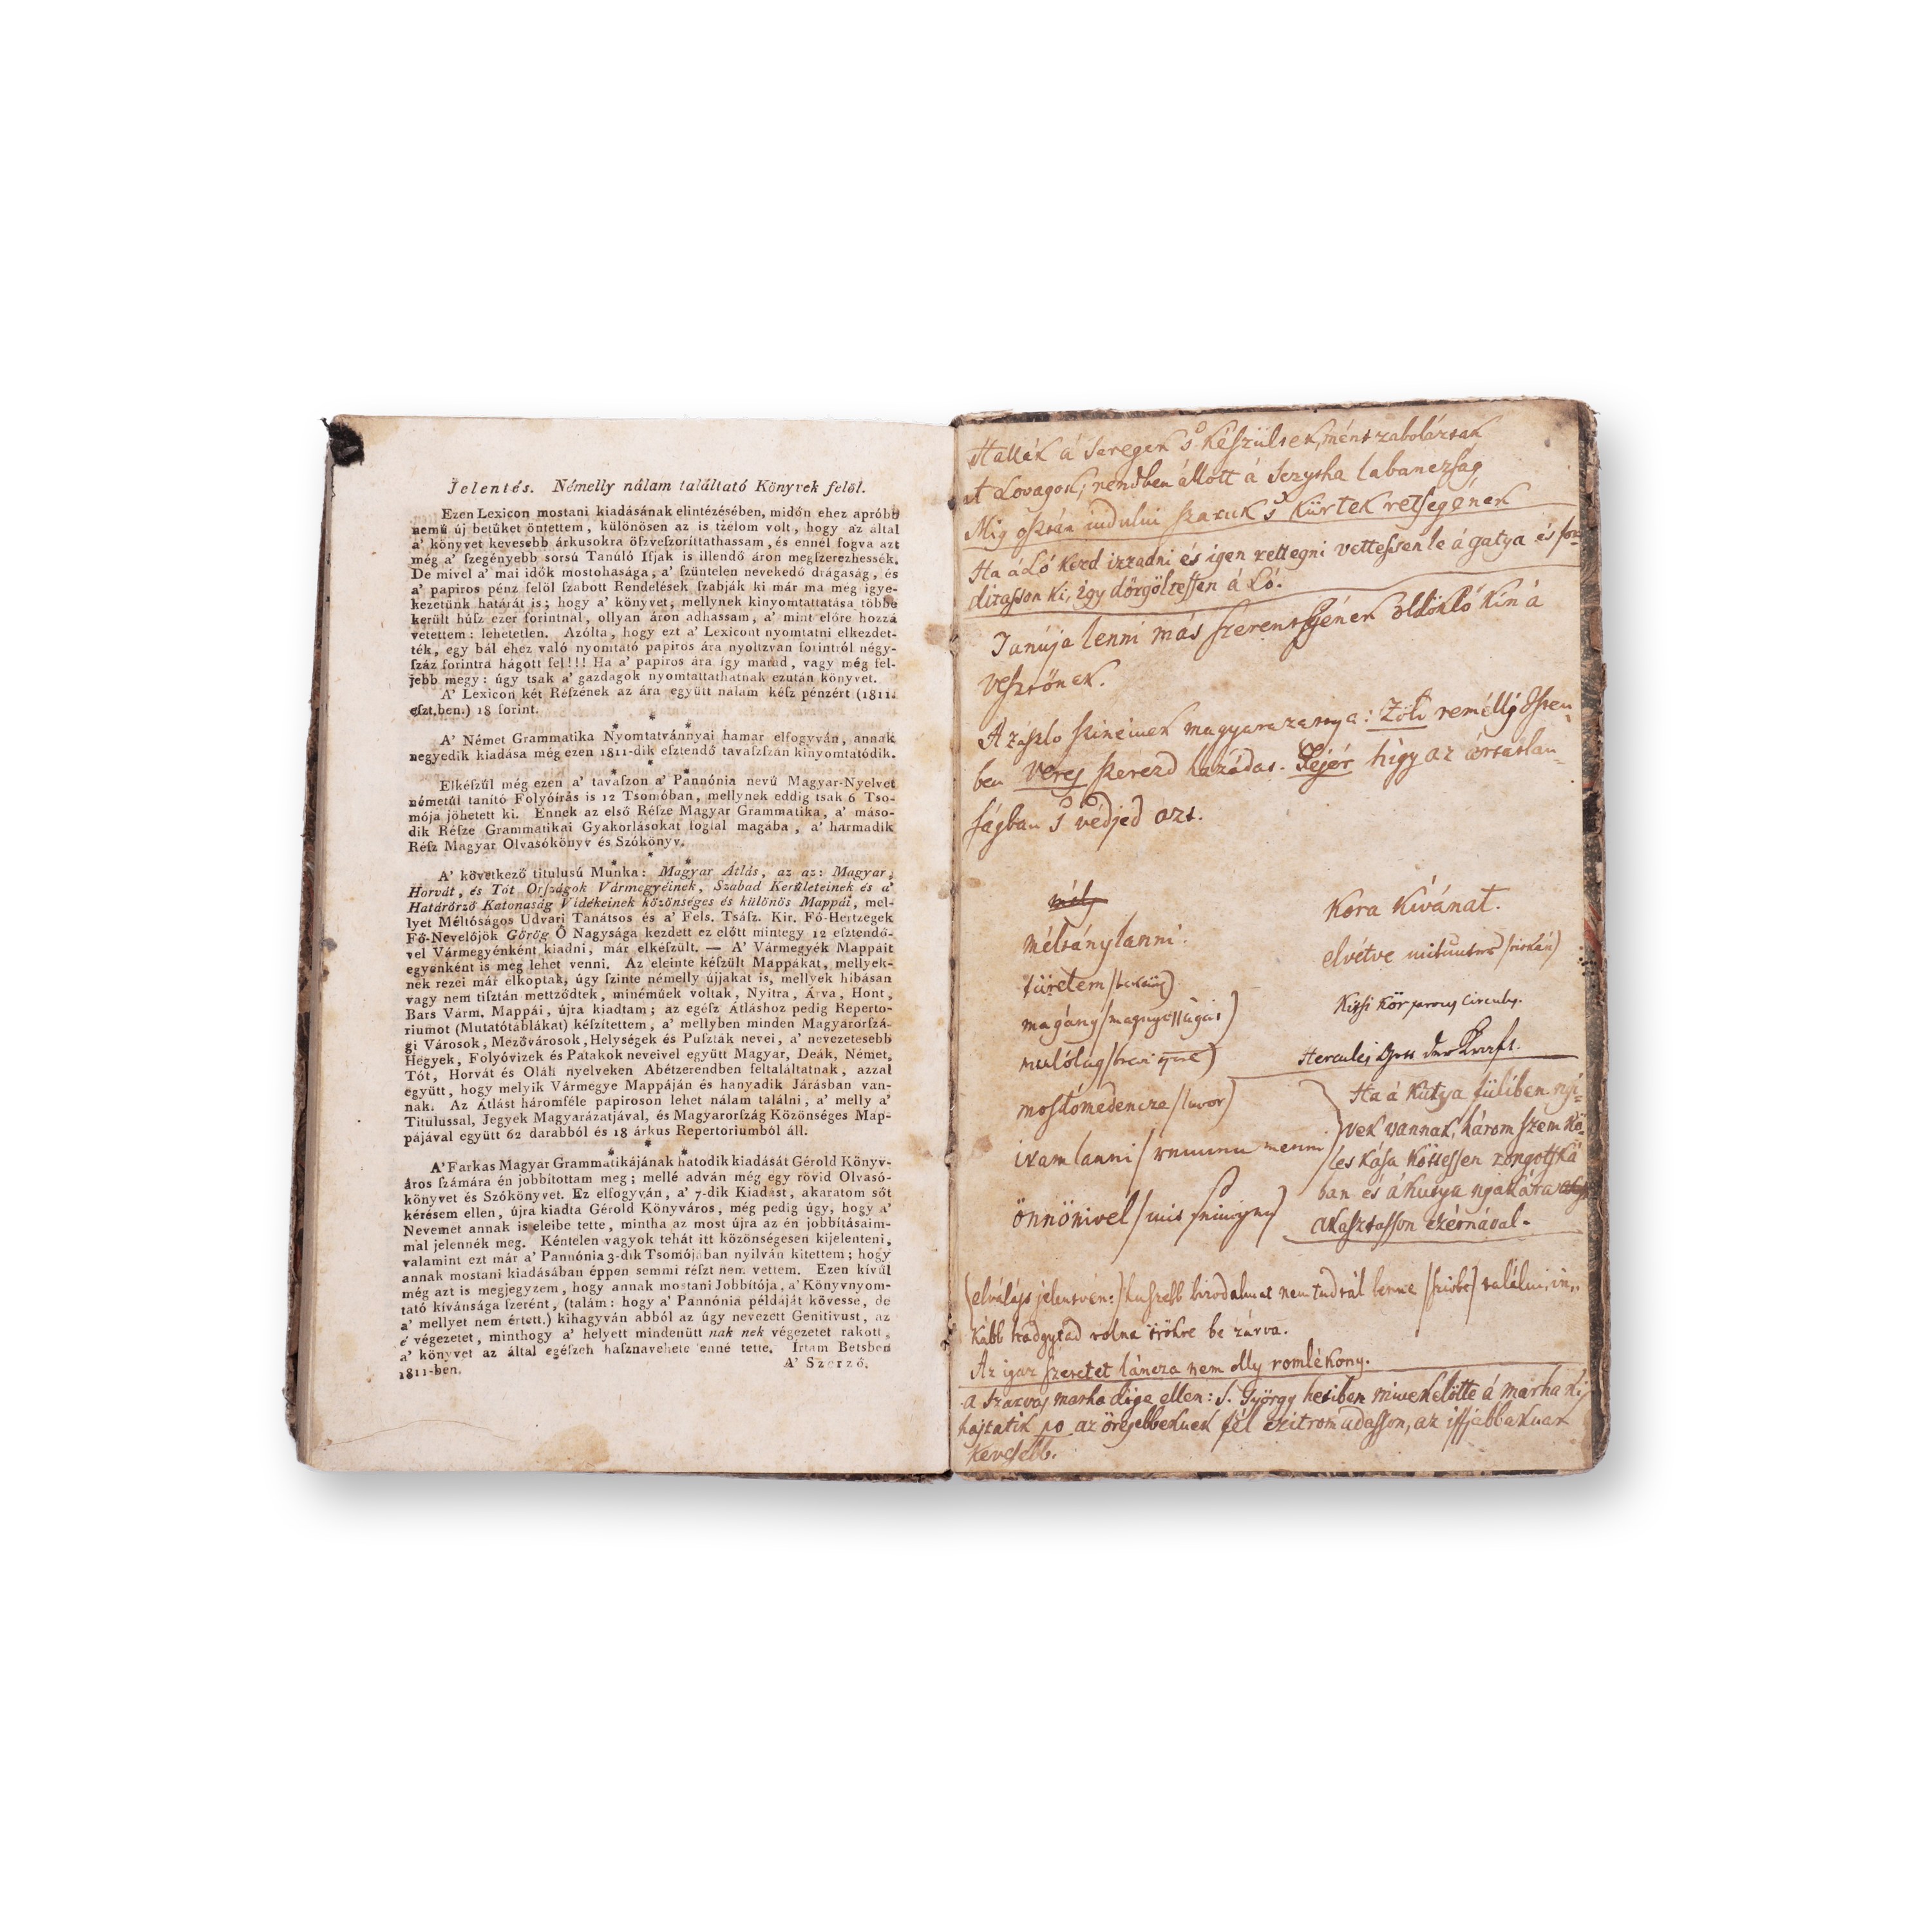 Jelentés. Némelly nálam találtató Könyvek felöl.
Ezen Lexicon mostani kiadásának elintézésében, midőn ehez apróbb
nemű új betűket öntettem, különösen az is tzélom volt, hogy az által
a' könyvet kevesebb árkusokra öſzveſzoríttathassam, és ennél fogva azt
még a' ſzegényebb sorsú Tanúló Ifjak is illendő áron megſzerezhessék.
De mivel a' mai idők mostohasága, a' ſzüntelen nevekedő drágaság, és
a' papiros pénz felöl ſzabott Rendelések ſzabják ki már ma meg igye-
kezetünk határát is; hogy a' könyvet, mellynek kinyomtattatása többe
került húſz ezer forintnál, ollyan áron adhassam, a' mint előre hozzá
vetettem: lehetetlen. Azólta, hogy ezt a' Lexicont nyomtatni elkezdet-
ték, egy bál ehez való nyomtató papiros ára nyoltzvan forintról négy-
ſzáz forintra hágott fel!!! Ha a' papiros ára így marad, vagy még fel-
jebb megy: úgy tsak a' gazdagok nyomtattathatnak ezután könyvet.
A' Lexicon két Réſzének az ára együtt nálam kéſz pénzért (1811.
eſzt.ben.) 18 forint.
* * *
A' Német Grammatika Nyomtatvánnyai hamar elfogyván, annak
negyedik kiadása még ezen 1811-dik eſztendő tavaſzſzán kinyomtatódik.
* * *
Elkéſzül még ezen a' tavaſzon a' Pannónia nevű Magyar-Nyelvet
németűl tanító Folyóírás is 12 Tsomóban, mellynek eddig tsak 6 Tso-
mója jöhetett ki. Ennek az első Réſze Magyar Grammatika, a' máso-
dik Réſze Grammatikai Gyakorlásokat foglal magába, a' harmadik
Réſz Magyar Olvasókönyv és Szókönyv.
* * *
A' következő titulusú Munka: Magyar Átlás, az az: Magyar,
Horvát, és Tót Orſzágok Vármegyéinek, Szabad Kerületeinek és a'
Határőrző Katonaság Vidékeinek közönséges és különös Mappái, mel-
lyet Méltóságos Udvari Tanátsos és a' Fels. Tsáſz. Kir. Fő-Hertzegek
Fő-Nevelőjök Görög Ő Nagysága kezdett ez előtt mintegy 12 eſztendő-
vel Vármegyénként kiadni, már elkéſzült. — A' Vármegyék Mappáit
egyenként is meg lehet venni. Az eleinte kéſzült Mappákat, mellyek-
nek rezei már elkoptak, úgy ſzinte némelly újjakat is, mellyek hibásan
vagy nem tiſztán mettződtek, minéműek voltak, Nyitra, Árva, Hont,
Bars Várm. Mappái, újra kiadtam; az egéſz Átláshoz pedig Reperto-
riumot (Mutatótáblákat) kéſzítettem, a' mellyben minden Magyarorſzá-
gi Városok, Mezővárosok, Helységek és Puſzták nevei, a' nevezetesebb
Hegyek, Folyóvizek és Patakok neveivel együtt Magyar, Deák, Német,
Tót, Horvát és Oláh nyelveken Abétzerendben feltaláltatnak, azzal
együtt, hogy melyik Vármegye Mappáján és hanyadik Járásban van-
nak. Az Átlást háromféle papiroson lehet nálam találni, a' melly a'
Titulussal, Jegyek Magyarázatjával, és Magyarorſzág Közönséges Map-
pájával együtt 62 darabból és 18 árkus Repertoriumból áll.
* *
A' Farkas Magyar Grammatikájának hatodik kiadását Gérold Könyv-
áros ſzámára én jobbítottam meg; mellé adván még egy rövid Olvasó-
könyvet és Szókönyvet. Ez elfogyván, a' 7-dik Kiadást, akaratom sőt
kérésem ellen, újra kiadta Gérold Könyváros, még pedig úgy, hogy a'
Nevemet annak is eleibe tette, mintha az most újra az én jobbításaim-
mal jelennék meg. Kéntelen vagyok tehát itt közönségesen kijelenteni,
valamint ezt már a' Pannónia 3-dik Tsomójában nyilván kitettem; hogy
annak mostani kiadásában éppen semmi réſzt nem vettem. Ezen kívül
még azt is megjegyzem, hogy annak mostani Jobbítója, a' Könyvnyom-
tató kívánsága ſzerént, (talám: hogy a' Pannónia példáját kövesse, de
a' mellyet nem értett.) kihagyván abból az úgy nevezett Genitivust, az
é végezetet, minthogy a' helyett mindenütt nak nek végezetet rakott,
a' könyvet az által egéſzeh haſznavehete 'enné tette. Írtam Betsben
1811-ben. A' Szerző.
Hallák á Seregek s' készülnek, mént zaboláztak
A Lovagok, rendben állott á labanczság
Mig osztán indulni szaruk s' kürtek retsegének
Ha á Ló kezd izzadni és igen rettegni vettessen le á gatya és for-
ditasson ki, igy dörgöltessen á Ló.
Tanúja lenni más szerentséjének öldöklő kín á
vesztőnek.
A zászló színeinek magyarazattya: Zöld reméllj Isten
ben Veres szerezd hazádat. Fejér higy az ártatlan-
ságban s védjed azt.
méltánylanni.
türelem
magány
mulólag
mosdómedencze /lavor/
ivamlanni
önnönivel
Kóra kívánat.
elvétve
Kissi Kör parvus Circulus.
Hercules Gott der Kraft.
Ha á Kutya füliben nyü-
vek vannak, három szem kö-
les kása köttessen rongotská
ban és á kutya nyakára
akasztasson czérnával.
(elválás jelentvén:) benne /szivbe/ találni, in-
kább hadgytad volna örökre be zárva.
Az igaz szeretet láncza nem olly romlékony.
A szarvas marha döge ellen: S. György hetiben minekelötte á marha ki
hajtatik az öregebbeknek fél czitrom adasson, az ifjabbaknak
Kevesebb.